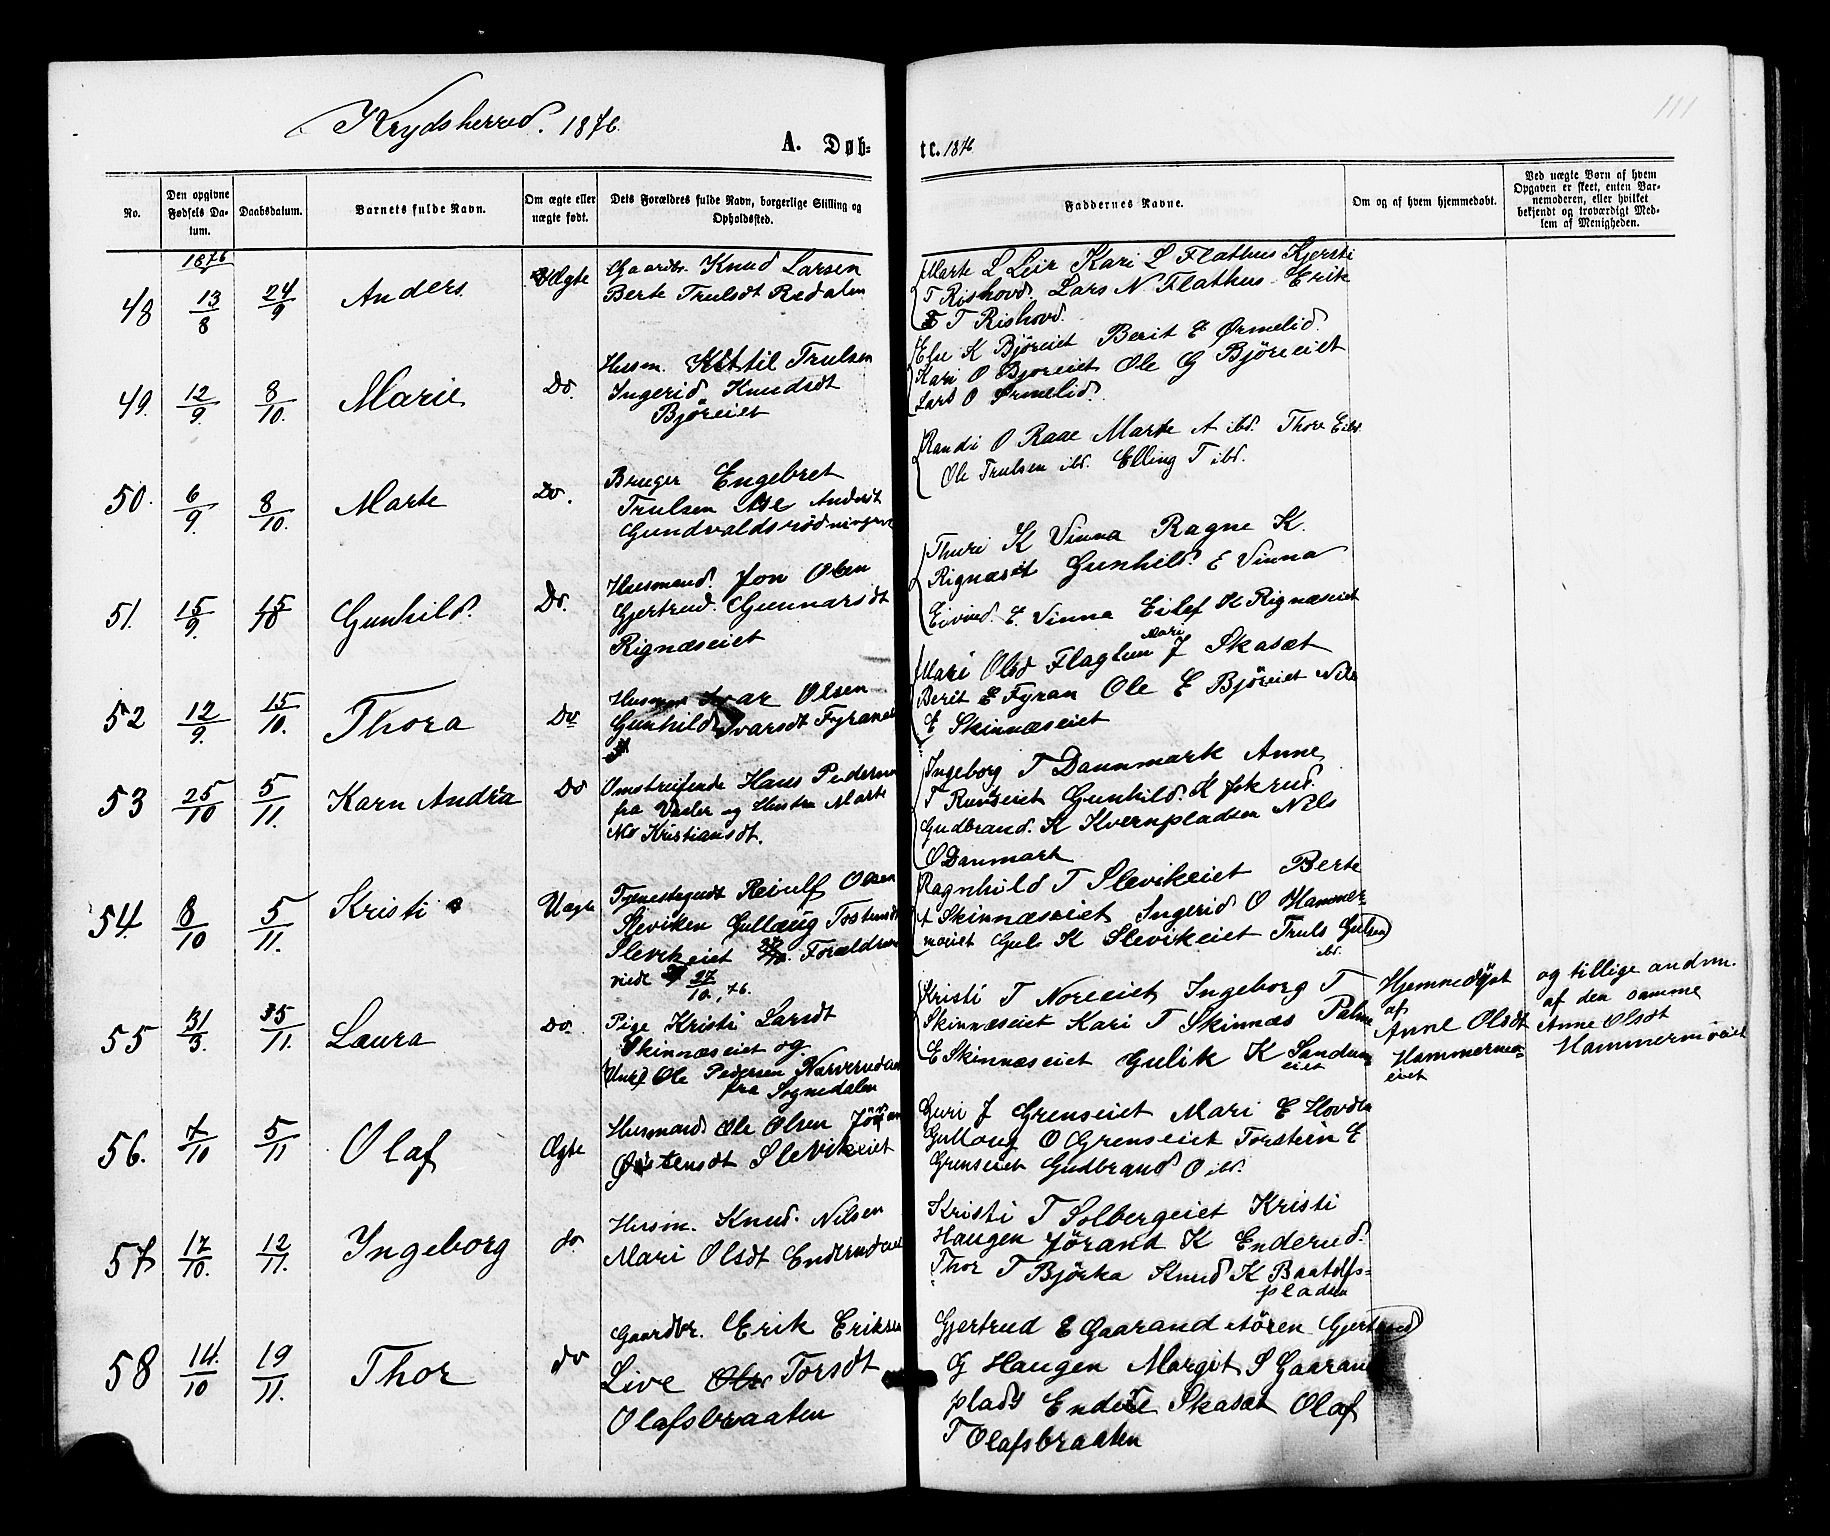 Krydsherred. 1876.
111
A. Døb-
te. 1876
No.
Den opgivne Fødsels Da-tum.
Daabsdatum.
Barnets fulde Navn.
Om ægte eller uægte født.
Dets Forældres fulde Navn, borgerlige Stilling og Opholdssted.
Faddernes Navne.
Om og af hvem hjemmedøbt.
Ved uægte Børn af hvem Opgaven er skeet, enten Bar-nemoderen, eller hvilket bekjendt og troværdigt Med-lem af Menigheden.
1876
48 13/8 24/9 Anders Ægte
Gaardbr. Knud Larsen
Berte Trulsdt Redalen
Marte L Leir Kari L Flathus Kjersti
T Rishovd. Lars N Flathus Erik
T Rishovd.
49. 12/9. 8/10. Marie Do.
Husm. Kittil Trulsen
Ingerid Knudsdt
Bjøreiet
Else K Bjøreiet Berit E Ørmelid.
Kari O Bjøreiet Ole G Björeiet
Lars O Ørmelid.
50. 6/9. 8/10. Marte Do.
Bruger Engebret
Trulsen Andersdt
Randi O Raae Marte A ibd. Thore E ibd.
Ole Trulsen ibd. Elling T ibd.
51. 15/9. 15/10 Gunhild. Do.
Husmand. Jon Olsen
Gjertrud. Gunnarsdt
Rignæseiet
Thuri K Vinna Ragne K.
Rignæseiet Gunhild. E Vinna
Eivind. E. Vinna Eilef K Rignæseiet
52 12/9. 15/10. Thora Do
Husm Ivar Olsen
Gunhild Ivarsdt
Mari Olsd Flaglien Mari J Skasæt
Berit E Fyran Ole E Björeiet Nils
E Skinnæseiet
53 25/10 5/11. Karn Andrea Do
Omstreifende Hans Pedersen
fra Valer og Hustru Marte
Kristiansdt.
Ingeborg T Dannmark Anne
T Gunhild. K
Gudbrand. K Kvernpladsen Nils
O Danmark
54. 8/10 5/11. Kristi Uægte
Tjenestegudt Reiulf Olsen
Sleviken Gullaug Tostensdt
Slevikeiet Forældrene
viede 27/10. 76.
Ragnhild T Slevikeiet Berte
A Skinnæseiet Ingerid O Hammer-
moeiet Gul K Slevikeiet Truls Gulsen
ibd.
55 31/3. 5/11. Laura Do.
Pige Kristi Larsdt
Skinnæseiet og
Ungk Ole Pedersen
fra Sognedalen
Kristi T Noreeiet Ingeborg T
Skinnæseiet Kari T Skinnæs Palme
E Skinnæseiet Gulik K
eiet
Hjemmedøpt
af
Anne Olsdt
Hammermo-
eiet
og tillige
af den samme
Anne Olsdt
Hammermoeiet
56. 7/10 5/11 Olaf Ægte
Husmand Ole Olsen
Slevikeiet
Guri J Grenseiet Mari E Hovde
Gullaug O Grenseiet Torstein E
Grenseiet Gudbrand O ibd.
57 17/10. 12/11. Ingeborg do
Husm. Knud. Nilsen
Mari Olsdt
Kristi T Solbergeiet Kristi
Haugen Jørand K Enderud.
Thor T Björka Knud K Baatolfs-
pladsen
58 14/10 19/11. Thor do
Gaardbr. Erik Eriksen
Live Torsdt
Olafsbraaten
Gjertrud E Gaarand Gjertrud
G Haugen Margit S Gaarand
plads Skasæt Olaf
T Olafsbraaten